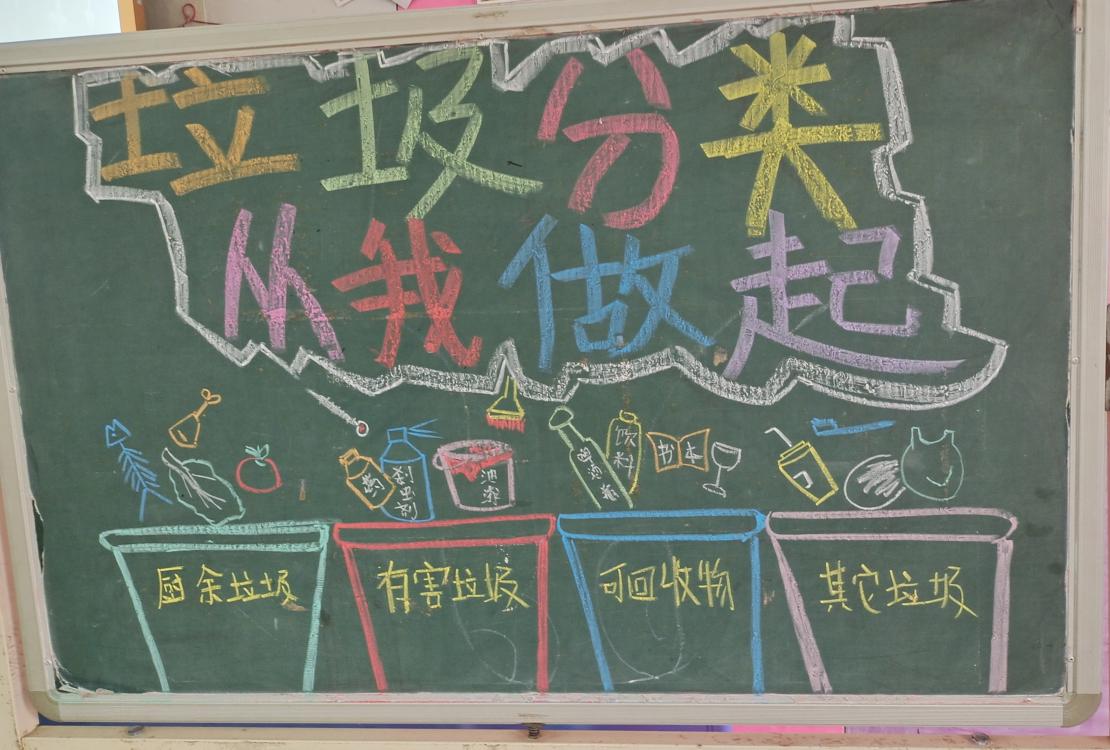 垃圾分类
从我做起
药
杀虫剂
油漆
啤酒瓶
饮料
书本
厨余垃圾
有害垃圾
可回收物
其它垃圾